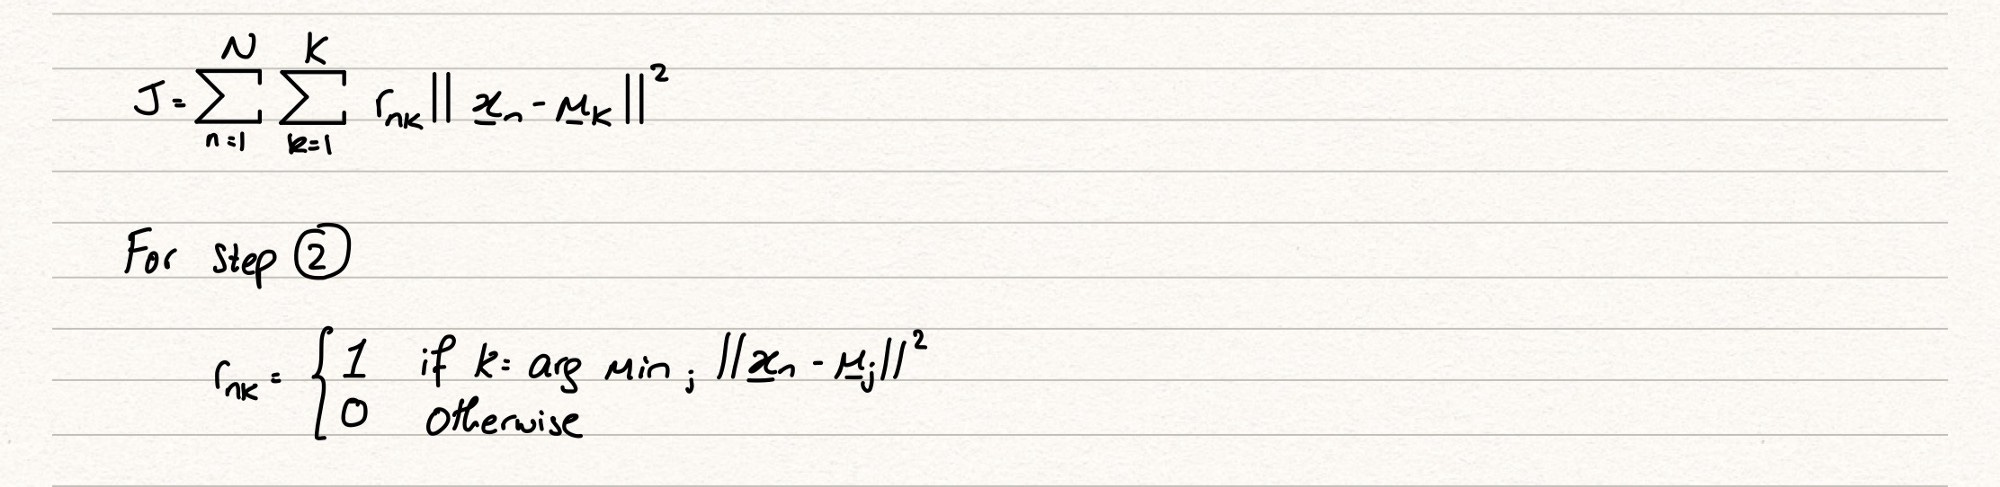 J = \sum_{n=1}^{N} \sum_{k=1}^{K} r_{nk} || \underline{x}_n - \underline{\mu}_k ||^2
For step ②
r_{nk} = { 1 if k = arg min_j || \underline{x}_n - \underline{\mu}_j ||^2
0 otherwise